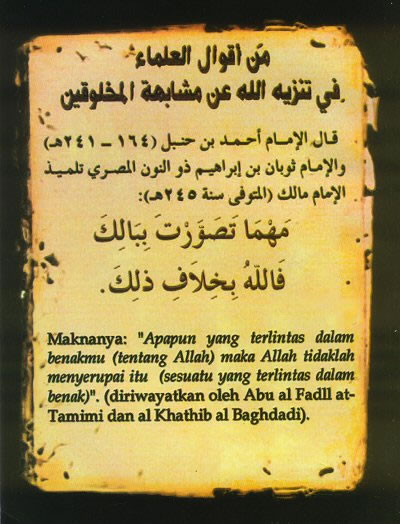 من أقوال العلماء
في تنزيه الله عن مشابهة المخلوقين
قال الإمام أحمد بن حنبل (١٦٤ – ٢٤١هـ)
والإمام ثوبان بن إبراهيم ذو النون المصري تلميذ
الإمام مالك (المتوفى سنة ٢٤٥هـ):
مَهْمَا تَصَوَّرْتَ بِبَالِكَ
فَاللهُ بِخِلَافِ ذلِكَ.
Maknanya: "Apapun yang terlintas dalam
benakmu (tentang Allah) maka Allah tidaklah
menyerupai itu (sesuatu yang terlintas dalam
benak)". (diriwayatkan oleh Abu al Fadll at-
Tamimi dan al Khathib al Baghdadi).